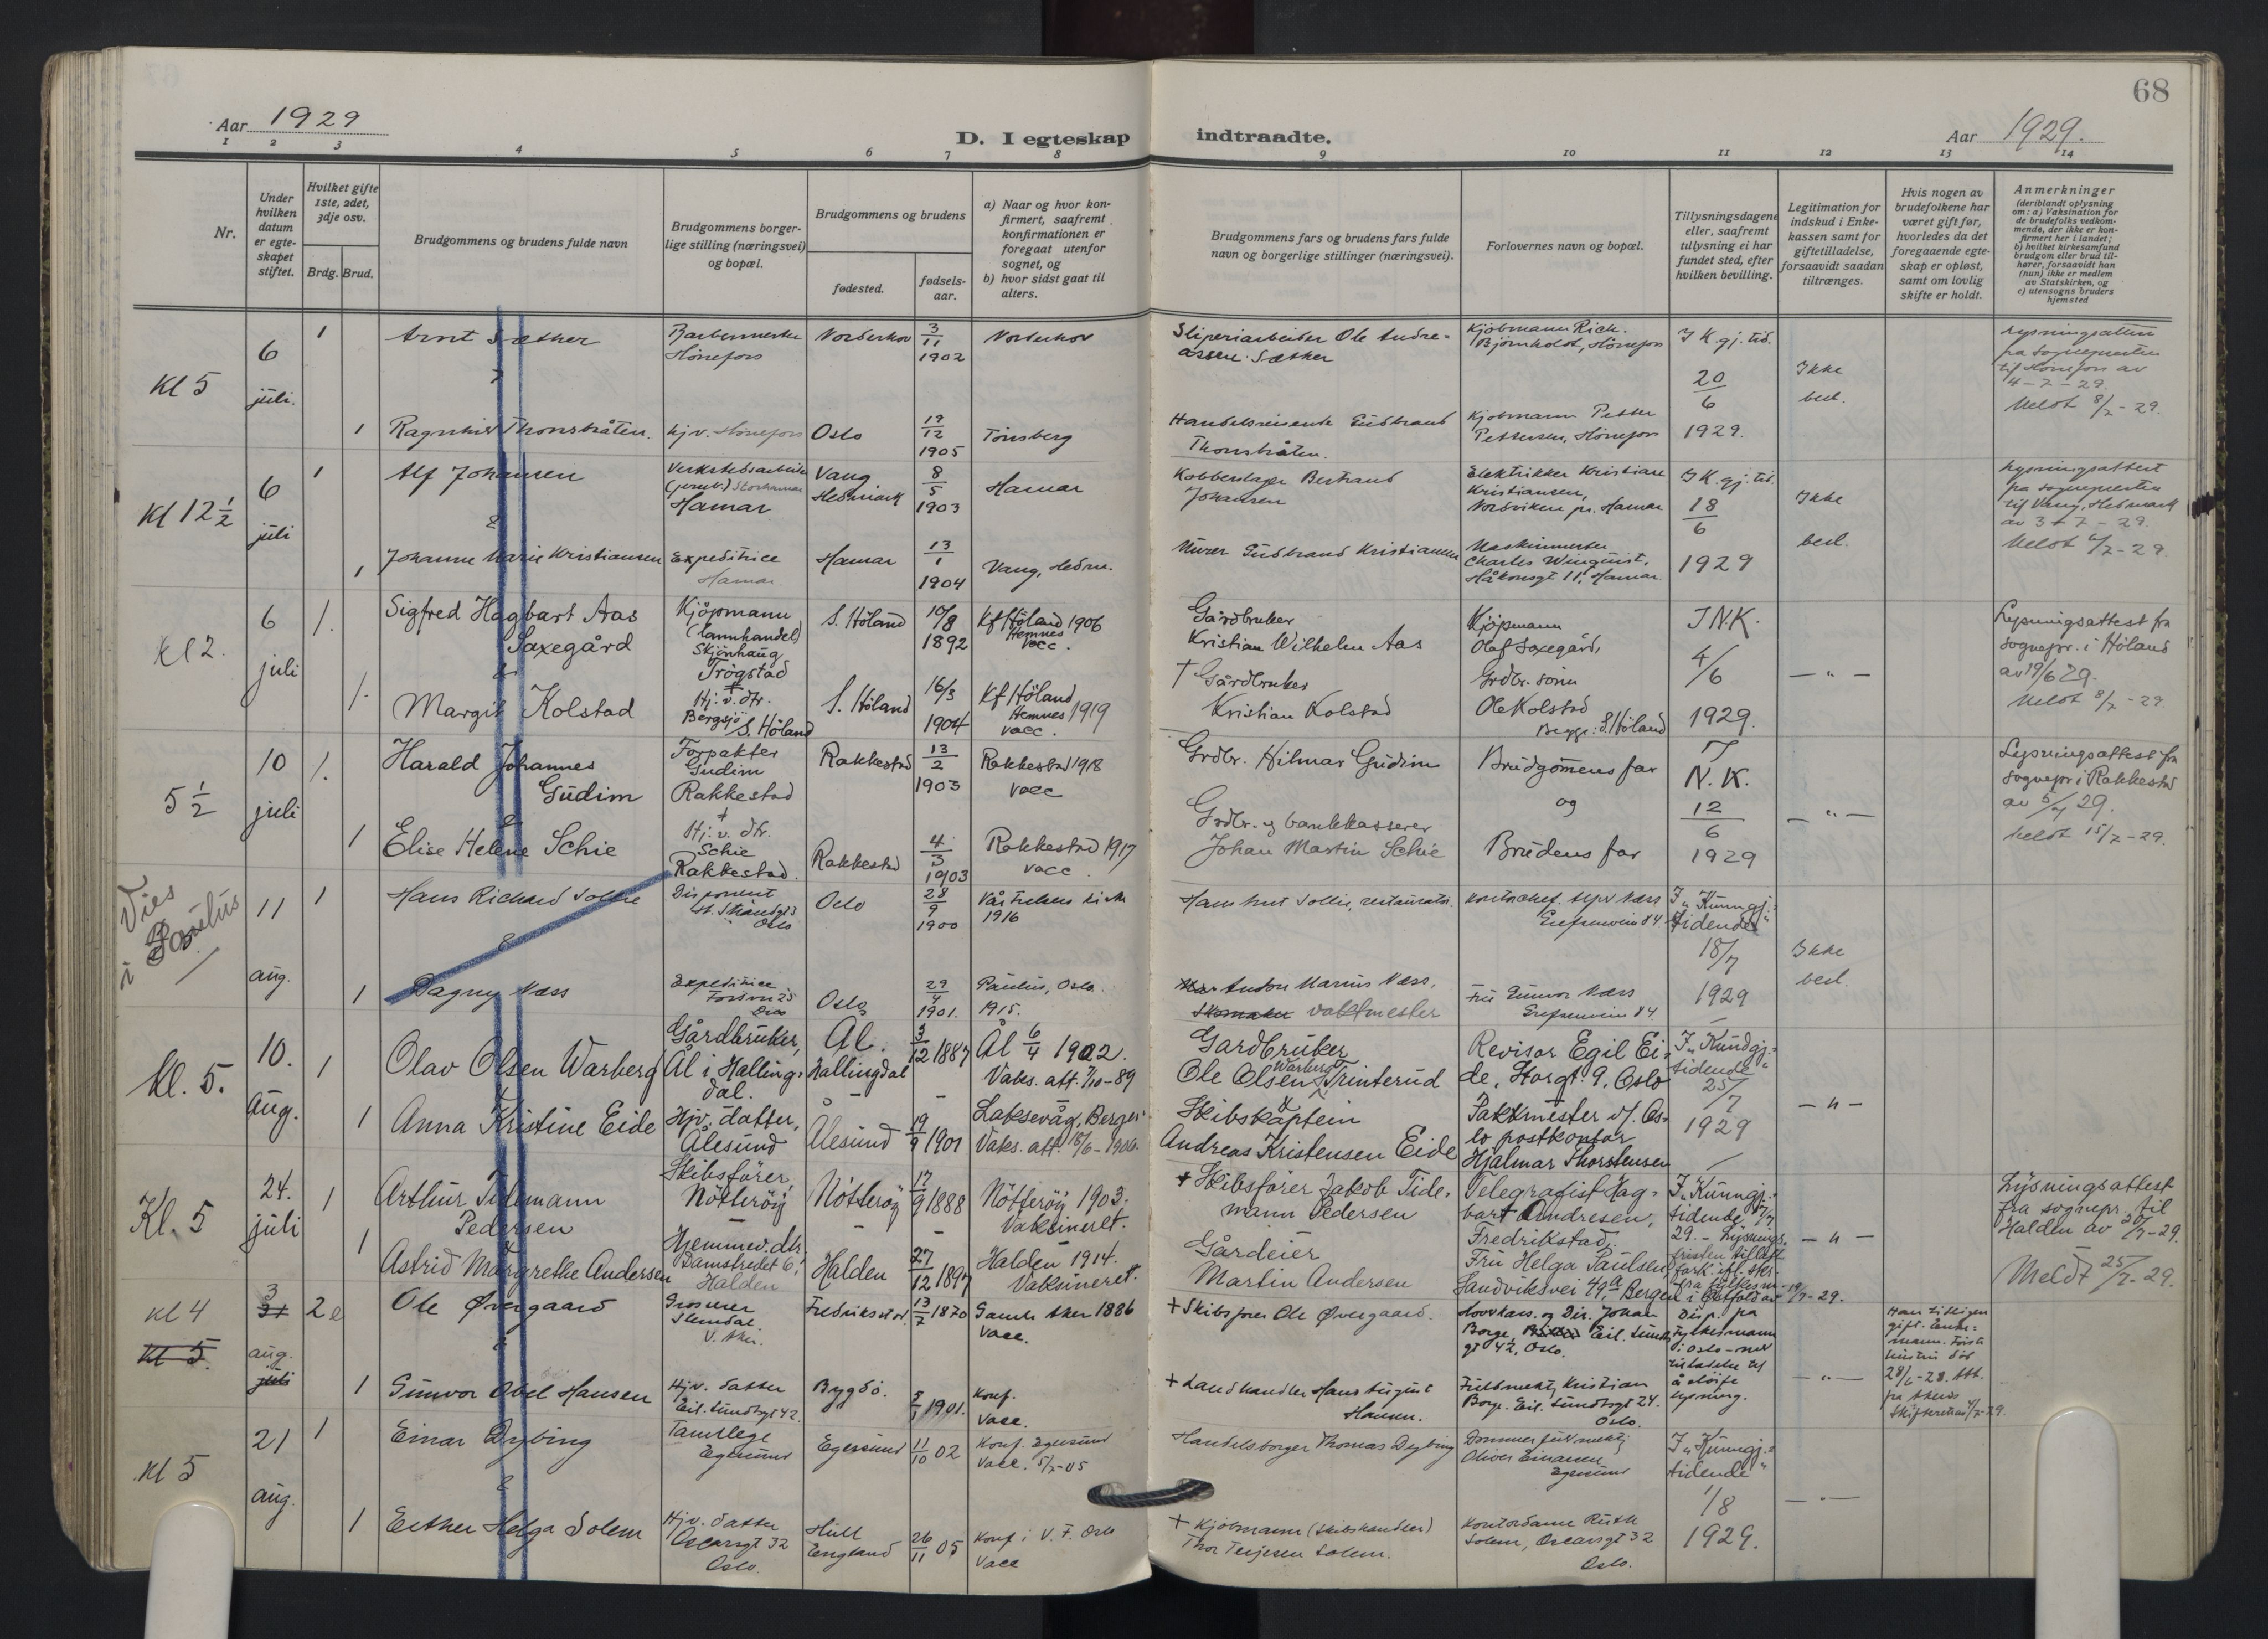 68
Aar 1929
D. I egteskap indtraadte.
Aar 1929.
1 2 3 4 5 6 7 8 9 10 11 12 13 14
Nr.
Under
hvilken
datum
er egte-
skapet
stiftet.
Hvilket gifte
1ste, 2det,
3dje osv.
Brdg. Brud.
Brudgommens og brudens fulde navn
Brudgommens borger-
lige stilling (næringsvei)
og bopæl.
Brudgommens og brudens
fødested.
fødsels-
aar.
a) Naar og hvor kon-
firmert, saafremt
konfirmationen er
foregaat utenfor
sognet, og
b) hvor sidst gaat til
alters.
Brudgommens fars og brudens fars fulde
navn og borgerlige stillinger (næringsvei).
Forlovernes navn og bopæl.
Tillysningsdagene
eller, saafremt
tillysning ei har
fundet sted, efter
hvilken bevilling.
Legitimation for
indskud i Enke-
kassen samt for
giftetilladelse,
forsaavidt saadan
tiltrænges.
Hvis nogen av
brudefolkene har
været gift før,
hvorledes da det
foregaaende egte-
skap er opløst,
samt om lovlig
skifte er holdt.
Anmerkninger
(deriblandt oplysning
om: a) Vaksination for
de brudefolks vedkom-
mende, der ikke er kon-
firmert her i landet;
b) hvilket kirkesamfund
brudgom eller brud til-
hører, forsaavidt han
(hun) ikke er medlem
av Statskirken, og
c) utensogns bruders
hjemsted
Kl 5
6
juli.
1
Arnt Sæther
Hønefoss
Norderhov
3/11
1902
Norderhov
Sliperiarbeider Ole Andre-
assen Sæther
Kjøbmann Rich.
Bjørnholdt, Hønefoss
I K.gj. tid.
20/6
1929.
Ikke
bed.
Lysningsattest
fra sognepresten
til Hønefoss av
4-7-29.
Meldt 8/7-29.
&
1
Ragnhild Thonsbråten.
Hjv. Hønefoss
Oslo
19/12
1905
Tønsberg
Handelsreisende Gudbrand
Thonsbråten.
Kjøbmann Petter
Pettersen, Hønefoss
Kl 12½
6
juli
1
Alf Johansen
Verkstedsarbeider
Storhamar
Hamar
Vang
Hedmark
8/5
1903
Hamar
Kobberslager Bertrand
Johansen
Elektrikker Kristian
Kristiansen,
Nordviken pr. Hamar
I K.gj. tid.
18/6
1929
Ikke
bed.
Lysningsattest
fra sognepresten
til Vang, Hedmark
av 3-7-29.
&
1
Johanne Marie Kristiansen
Expeditrice
Hamar
Hamar
13/1
1904
Vang, Hedm.
Murer Gudbrand Kristiansen
Maskinmester
Charles Winquist,
Håkonsgt 11, Hamar.
Kl 2.
6
juli
1.
Sigfred Hagbart Aas
Saxegård
Kjøpmann
Skjønhaug
Trøgstad
S. Høland
10/8
1892
Kf Høland 1906
Hemnes
vacc.
Gårdbruker
Kristian Wilhelm Aas
Kjøpmann
Olaf Saxegård,
I N.K.
4/6
1929.
— " —
Lysningsattest fra
sognepr. i Høland
av 19/6 29.
Meldt 8/7-29.
&
1.
Margit Kolstad
Hj. v. dtr.
Bergsjø
S. Høland
S. Høland
16/3
1904
Kf Høland
Hemnes 1919
vacc.
† Gårdbruker
Kristian Kolstad
Grdbr. sønn
Ole Kolstad
Begge: S. Høland
5½
10
juli
1.
Harald Johannes
Gudim
Forpakter
Gudim
Rakkestad
Rakkestad
13/2
1903
Rakkestad 1918
vacc
Grdbr. Hilmar Gudim
Brudgomens far
og
I
N.K.
12/6
1929
— " —
Lysningsattest fra
sognepr i Rakkestad
av 5/7 29.
Meldt 15/7-29.
&
1
Elise Helene Schie
Hj. v. dtr.
Schie
Rakkestad.
Rakkestad
4/3
1903
Rakkestad 1917
vacc.
Grdbr. og bankkasserer
Johan Martin Schie
Brudens far
Vies
i Paulus
11
aug.
1
Hans Richard Sollie
Disponent
Oslo
Oslo
28/9
1900
Vår Frelsers kirke
1916
Hans Knut Sollie, restauratør.
Grefsenveien 84.
I "Kunngj.-
tidende"
18/7
1929
Ikke
bed.
&
1
Dagny Næss
Expeditrice
Oslo
Oslo
29/4
1901.
Paulus, Oslo.
1915.
Anton Marius Næss,
Skomaker vaktmester
Fru Gunvor Næss
Grefsenveien 84.
Kl. 5.
10.
Aug.
1
Olav Olsen Warberg
Gårdbruker,
Ål i Halling-
dal.
Ål.
Hallingdal
3/12 1887
Ål 6/4 1902.
Vaks. att. 7/10-89
Gardbruker
Ole Olsen Warberg Trinterud
Revisor Egil Ei-
de, Horgt. 9, Oslo
I "Kundgj.-
tidende"
25/7
1929
— " —
1
Anna Kristine Eide
Hjv. datter,
Ålesund
Ålesund
19/9 1901
Laksevåg, Bergen
Vaks. att. 18/6-1906.
Skibskaptein
Andreas Kristensen Eide
Pakkmester v/ Os-
lo postkontor
Hjalmar Thorstensen
Kl. 5
24.
juli
1
Arthur Tidemann
Pedersen
Skibsfører,
Nøtterøy
Nøtterøy
17/9 1888
Nøtterøy 1903.
Vaksineret.
+ Skibsfører Jakob Tide-
mann Pedersen
Telegrafist Hag-
bart Andresen,
Fredrikstad.
I "Kunngj.-
tidende"
29. - Lysnings-
fristen
— " —
Lysningsattest
fra sognepr. til
Halden av 20/7-29.
Meldt 25/7-29.
1
Astrid Margrethe Andersen
Hjemmev. dtr.
Damstredet 6.
Halden
Halden
27/12 1897
Halden 1914.
Vaksineret.
Gårdeier
Martin Andersen
Fru Helga Paulsen,
Sandviksvei 49a, Bergen
kl 4
kl 5.
3
31
aug.
juli
2
Ole Øvergaard
Grosserer
V. Aker.
13/7 1870
Gamle Aker 1886
Vacc.
+ Skibsfører Ole Øvergaard.
Borge, Eil. Sundts
gt 42, Oslo.
Disp. fra
Fylkesmann
i Oslo
å sløife
lysning.
— " —
&
1
Gunvor Obel Hansen
Hjv. datter
Eil. Sundtsgt 42.
Bygdø.
1901.
Konf.
Vacc.
+ Landhandler Hans August
Hansen.
Fuldmekt. Kristian
Borge. Eil. Sundtsgt 24.
Oslo.
Kl 5
21
aug.
1
Einar Dybing
Tannlege
Egersund
Egersund
11/10 02
Konf. Egersund
Vacc. 5/7-05
Handelsborger Thomas Dybing
Dommerfullmektig
Oliver Einarsen
Egersund
I "Kunngj.-
tidende"
1/8
1929.
— " —
&
1
Esther Helga Solem
Hjv. datter
Oscarsgt 32
Oslo.
Hull
England
26/11 05
Konf i V. F. Oslo
Vacc
+ Kjøbmann (skibshandler)
Thor Terjesen Solem.
Kontordame Ruth
Solem, Oscarsgt 32
Oslo.